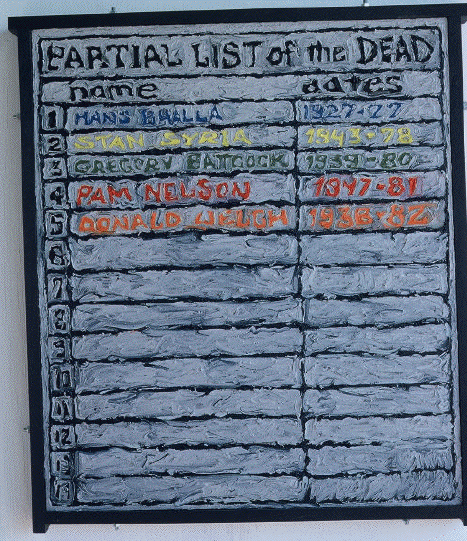 PARTIAL LIST of the DEAD
name dates
1 HANS BRALLA 1927-77
2 STAN SYRIA 1943-78
3 GREGORY BATTCOCK 1939-80
4 PAM NELSON 1947-81
5 DONALD WELCH 1936-82
6
7
8
9
10
11
12